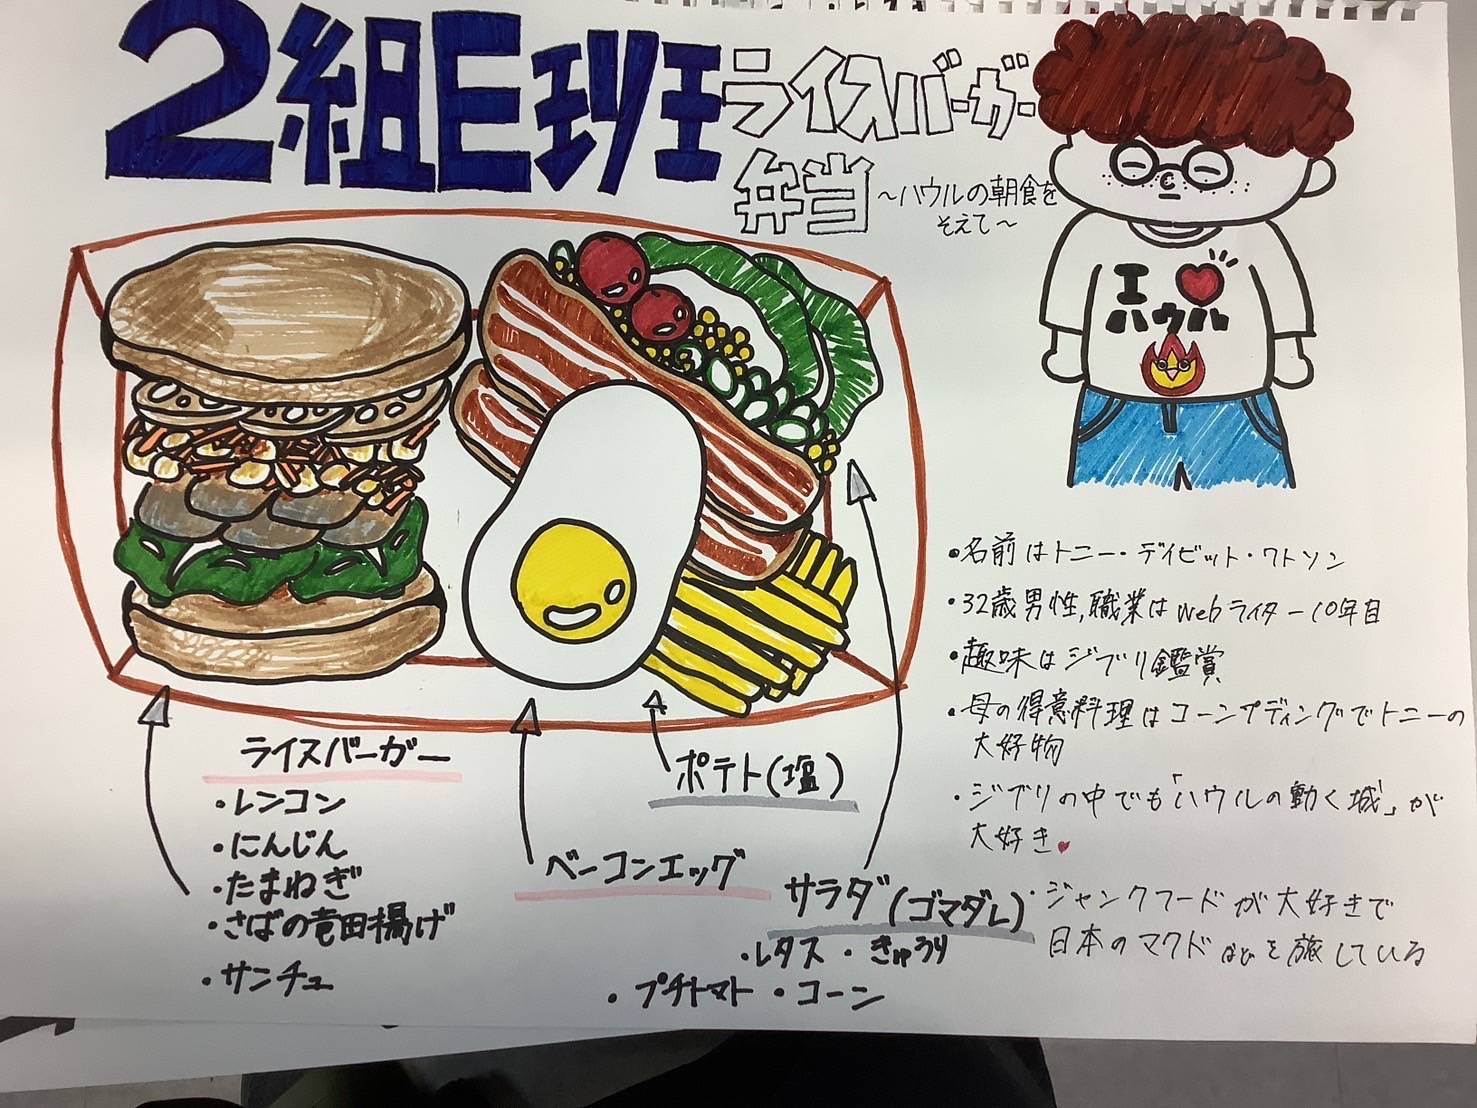 2組E班
ライスバーガー
弁当
〜ハウルの朝食を
そえて〜
I ♥
ハウル
ライスバーガー
・レンコン
・にんじん
・たまねぎ
・さばの竜田揚げ
・サンチュ
ベーコンエッグ
ポテト(塩)
サラダ(ゴマダレ)
・レタス・きゅうり
・プチトマト・コーン
・名前はトニー・デイビット・ワトソン
・32歳男性,職業はWebライター10年目
・趣味はジブリ鑑賞
・母の得意料理はコーンプディングでトニーの
大好物
・ジブリの中でも「ハウルの動く城」が
大好き♥
・ジャンクフードが大好きで
日本のマクドを旅している